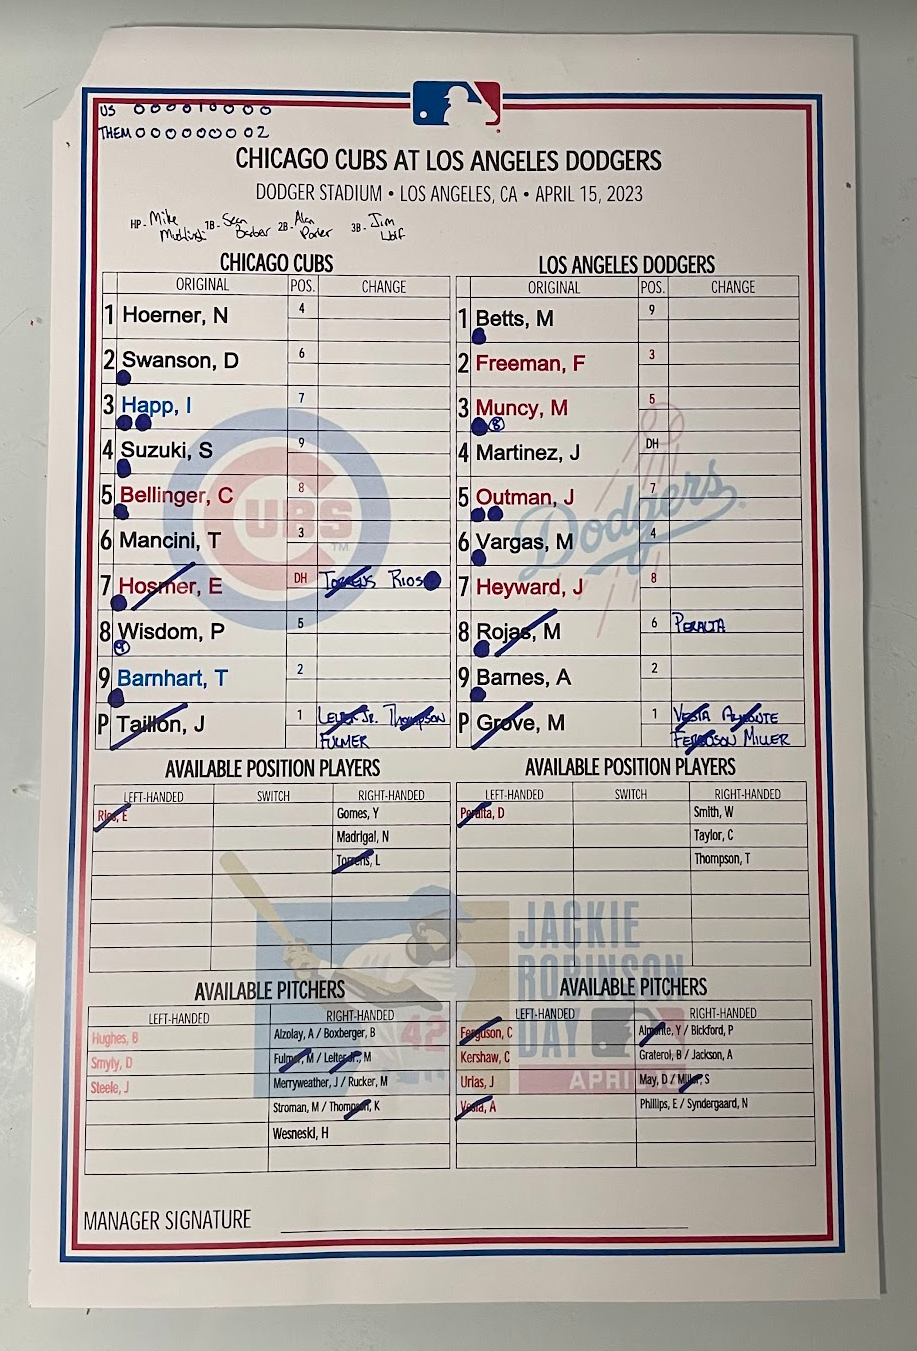 US 000010000
THEM 000000002
CHICAGO CUBS AT LOS ANGELES DODGERS
DODGER STADIUM • LOS ANGELES, CA • APRIL 15, 2023
HP- Mike 1B- Sean 2B- Alan 3B- Jim
Muchlinski Barber Porter Wolf
CHICAGO CUBS
ORIGINAL POS. CHANGE
1 Hoerner, N 4
2 Swanson, D 6
3 Happ, I 7
4 Suzuki, S 9
5 Bellinger, C 8
6 Mancini, T 3
7 Hosmer, E DH TORRENS RIOS
8 Wisdom, P 5
9 Barnhart, T 2
P Taillon, J 1 LEITER JR. THOMPSON
FULMER
LOS ANGELES DODGERS
ORIGINAL POS. CHANGE
1 Betts, M 9
2 Freeman, F 3
3 Muncy, M 5
8
4 Martinez, J DH
5 Outman, J 7
6 Vargas, M 4
7 Heyward, J 8
8 Rojas, M 6 PERALTA
9 Barnes, A 2
P Grove, M 1 VESIA ALMONTE
FERGUSON MILLER
CUBS
TM
Dodgers
AVAILABLE POSITION PLAYERS
LEFT-HANDED SWITCH RIGHT-HANDED
Rios, E Gomes, Y
Madrigal, N
Torrens, L
AVAILABLE POSITION PLAYERS
LEFT-HANDED SWITCH RIGHT-HANDED
Peralta, D Smith, W
Taylor, C
Thompson, T
JACKIE
ROBINSON
DAY
APRIL
42
AVAILABLE PITCHERS
LEFT-HANDED RIGHT-HANDED
Hughes, B Alzolay, A / Boxberger, B
Smyly, D Fulmer, M / Leiter Jr., M
Steele, J Merryweather, J / Rucker, M
Stroman, M / Thompson, K
Wesneski, H
AVAILABLE PITCHERS
LEFT-HANDED RIGHT-HANDED
Ferguson, C Almonte, Y / Bickford, P
Kershaw, C Graterol, B / Jackson, A
Urias, J May, D / Miller, S
Vesia, A Phillips, E / Syndergaard, N
MANAGER SIGNATURE